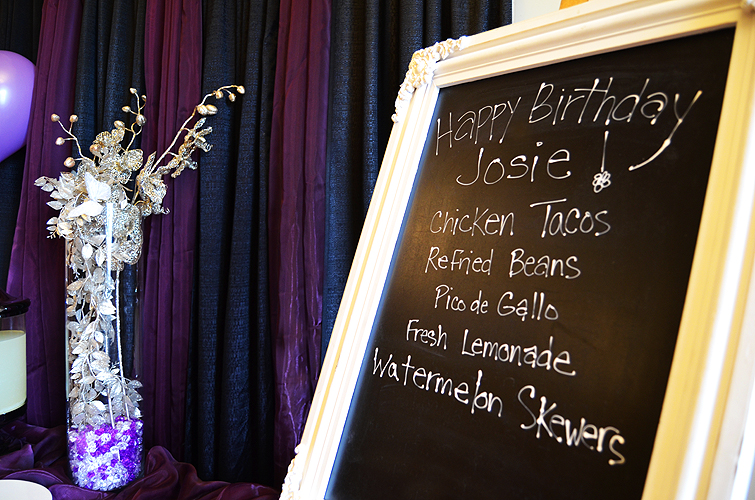 Happy Birthday
Josie!
Chicken Tacos
Refried Beans
Pico de Gallo
Fresh Lemonade
Watermelon Skewers